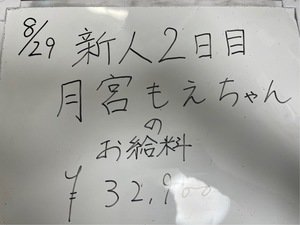 8/29
新人2日目
月宮もえちゃん
の
お給料
¥32,900